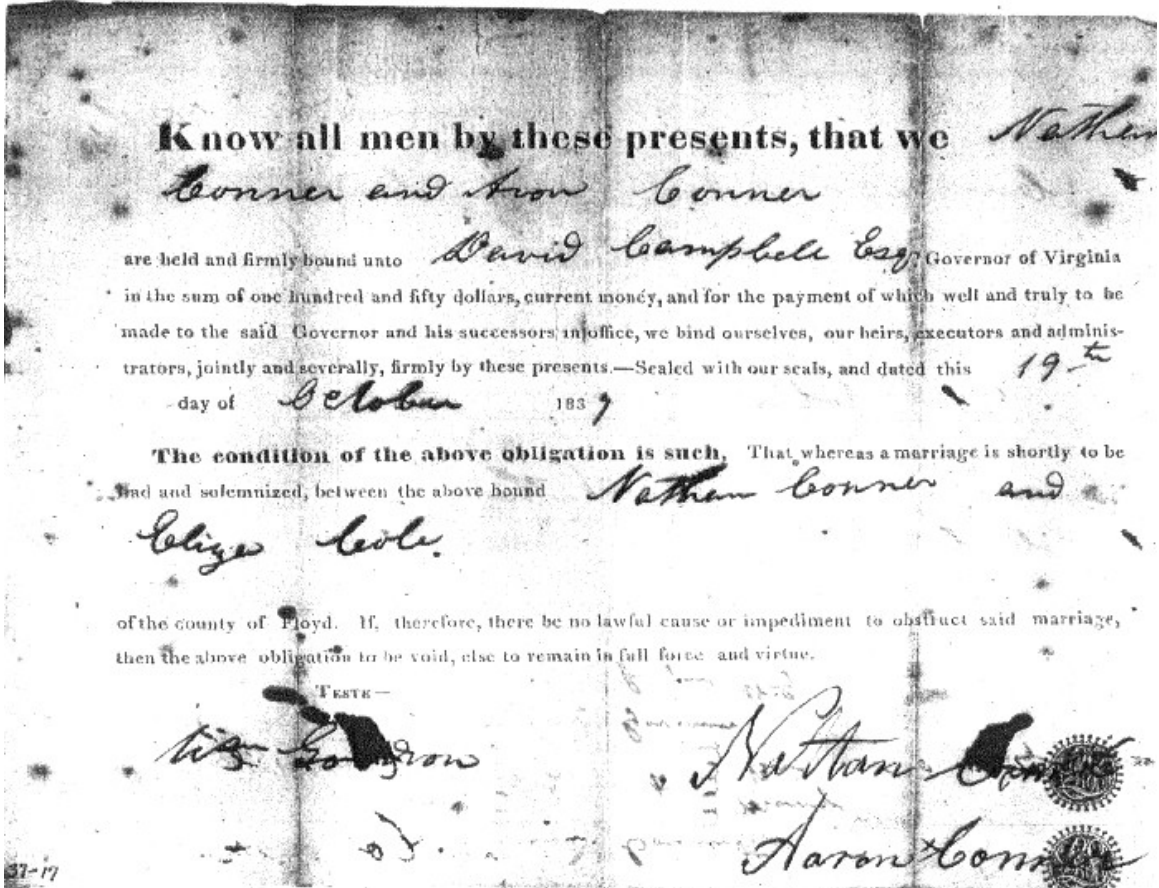 Know all men by these presents, that we Nathan
Conner and Aron Conner
are held and firmly bound unto David Campbell Esqr Governor of Virginia
in the sum of one hundred and fifty dollars, current money, and for the payment of which well and truly to be
made to the said Governor and his successors in office, we bind ourselves, our heirs, executors and adminis-
trators, jointly and severally, firmly by these presents.—Sealed with our seals, and dated this 19th
day of October 1837
The condition of the above obligation is such, That whereas a marriage is shortly to be
had and solemnized, between the above bound Nathan Conner and
Eliza Cole.
of the county of Floyd. If, therefore, there be no lawful cause or impediment to obstruct said marriage,
then the above obligation to be void, else to remain in full force and virtue.
TESTE—
Nathan Conner
Aaron Conner
37-17